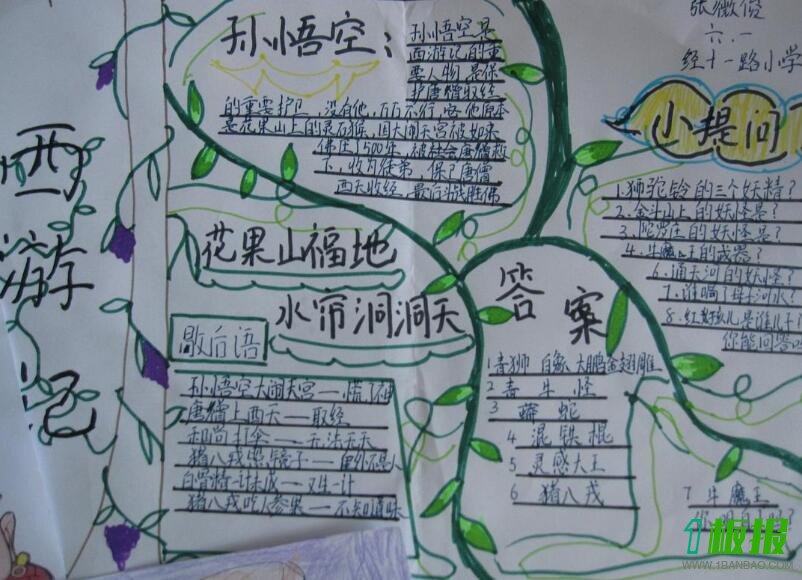 西游记
孙悟空：
孙悟空是
西游记的重
要人物,是保
护唐僧取经
的重要护卫，没有他，万万不行，
是花果山上的灵石猴，因大闹天宫被如来
佛压了500年，被
下，收为徒弟，保了唐僧
西天取经，最后斗战胜佛
花果山福地
水帘洞洞天
歇后语
孙悟空大闹天宫——慌了神
唐僧上西天——取经
和尚打伞——无法无天
猪八戒照镜子——里外不是人
白骨精一计未成——又生一计
猪八戒吃人参果——不知道味
张薇俊
六.一
经十一路小学
小提问
1.狮驼岭的三个妖精？
2.金斗山上的妖怪是？
3.陀罗庄的妖怪是？
4.牛魔王的武器？
6.通天河的妖怪？
7.谁喝了母子河水？
8.红孩儿是谁儿子
你能回答
答案
1青狮 白象 大鹏金翅雕
2 青牛怪
3 蟒蛇
4 混铁棍
5 灵感大王
6 猪八戒
7 牛魔王
1板报
WWW.1BANBAO.COM